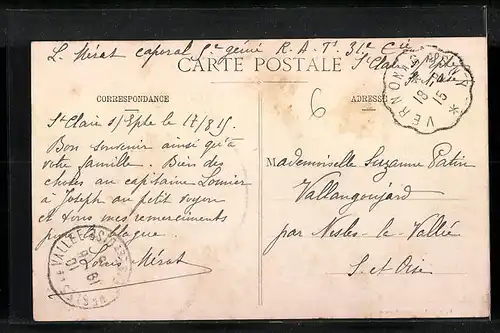 L. Mérat caporal 5e génie R.A.T. 31e Cie
St Clair s/Epte
CARTE POSTALE
CORRESPONDANCE
ADRESSE
6
St Clair s/Epte le 17/8 15
Bon souvenir ainsi qu'à
votre famille. Bien des
choses au capitaine
à Joseph au petit
et tous mes remerciments
pour la blague.
Louis Mérat
Mademoiselle Suzanne Patin
Vallangoujard
par Nesles-la-Vallée
S. et Oise
VERNON
18
15